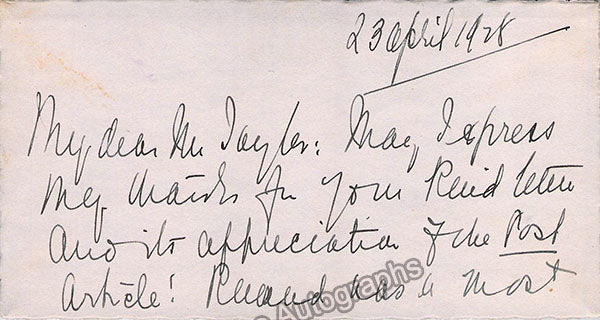 23 April 1928
My dear Mr Taylor: May I express
my thanks for your kind letter
and its appreciation of the Post
article! was a most
Autographs